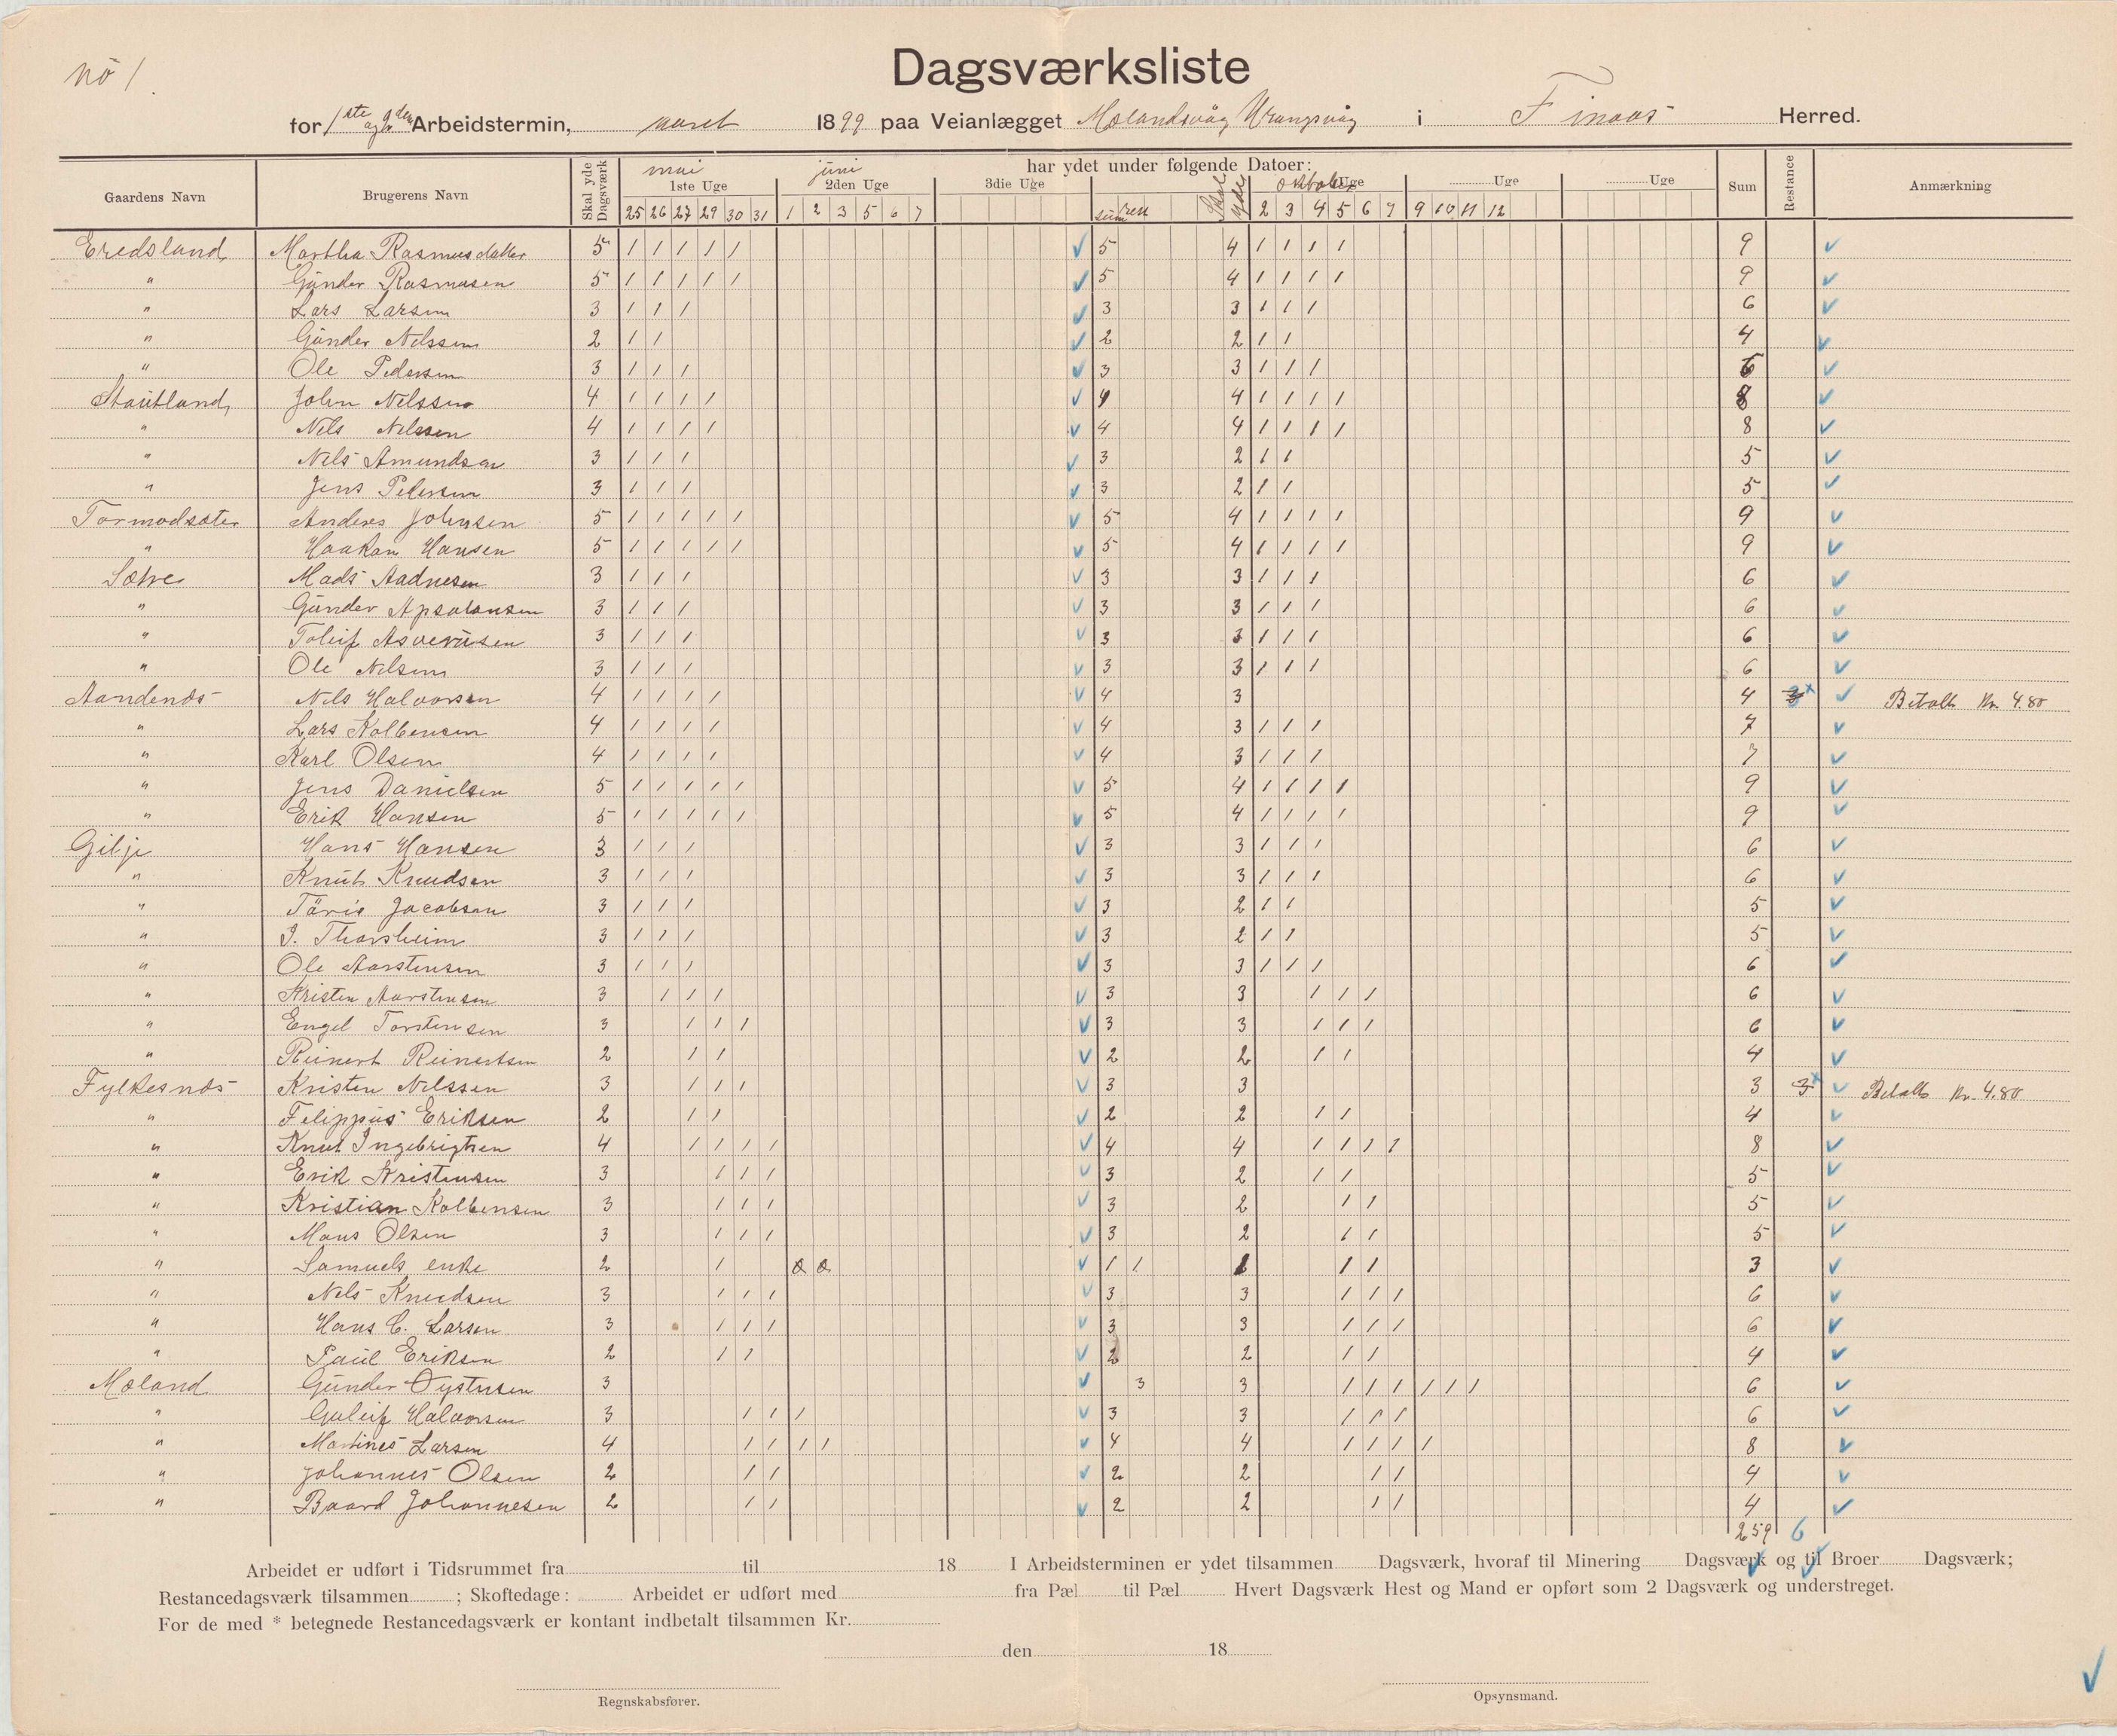 No 1
Dagsværksliste
for 1ste og 2den Arbeidstermin, aaret 1899 paa Veianlægget Mælandsvåg Vrangsvåg i Finaas Herred.
Gaardens Navn Brugerens Navn Skal yde Dagsværk har ydet under følgende Datoer: Sum Restance Anmærkning
mai juni oktober
1ste Uge 2den Uge 3die Uge Skal yde Uge Uge Uge
25 26 27 29 30 31 1 2 3 5 6 7 sum rest 2 3 4 5 6 7 9 10 11 12
Eredsland Martha Rasmusdatter 5 / / / / / 5 4 / / / / 9
" Gunder Rasmusen 5 / / / / / 5 4 / / / / 9
" Lars Larsen 3 / / / 3 3 / / / 6
" Gunder Nelssen 2 / / 2 2 / / 4
" Ole Pedersen 3 / / / 3 3 / / / 6
Stautland John Nelssen 4 / / / / 4 4 / / / / 8
" Nils Nelssen 4 / / / / 4 4 / / / / 8
" Nils Amundsen 3 / / / 3 2 / / 5
" Jens Pedersen 3 / / / 3 2 / / 5
Tormodsæter Anders Johnsen 5 / / / / / 5 4 / / / / 9
" Haakon Hansen 5 / / / / / 5 4 / / / / 9
Sætre Mads Aadnesen 3 / / / 3 3 / / / 6
" Gunder Apsalonsen 3 / / / 3 3 / / / 6
" Toleif Asverusen 3 / / / 3 3 / / / 6
" Ole Nelsen 3 / / / 3 3 / / / 6
Aandenæs Nils Halvorsen 4 / / / / 4 3 4 3 x Betalt Kr. 4.80
" Lars Kolbensen 4 / / / / 4 3 / / / 7
" Karl Olsen 4 / / / / 4 3 / / / 7
" Jens Danielsen 5 / / / / / 5 4 / / / / 9
" Erik Hansen 5 / / / / / 5 4 / / / / 9
Gilje Hans Hansen 3 / / / 3 3 / / / 6
" Knut Knudsen 3 / / / 3 3 / / / 6
" Tøris Jacobsen 3 / / / 3 2 / / 5
" I. Thorsheim 3 / / / 3 2 / / 5
" Ole Aarstensen 3 / / / 3 3 / / / 6
" Kristen Aarstensen 3 / / / 3 3 / / / 6
" Engel Torstensen 3 / / / 3 3 / / / 6
" Reinert Reinertsen 2 / / 2 2 / / 4
Fylkesnæs Kristen Nelssen 3 / / / 3 3 3 3 x Betalt Kr. 4.80
" Filippus Eriksen 2 / / 2 2 / / 4
" Knut Ingebrigtsen 4 / / / / 4 4 / / / / 8
" Erik Kristensen 3 / / / 3 2 / / 5
" Kristian Kolbensen 3 / / / 3 2 / / 5
" Mons Olsen 3 / / / 3 2 / / 5
" Samuels enke 2 / 1 1 / / 3
" Nels Knudsen 3 / / / 3 3 / / / 6
" Hans C. Larsen 3 / / / 3 3 / / / 6
" Paul Eriksen 2 / / 2 2 / / 4
Mæland Gunder Øystesen 3 3 3 / / / / / / 6
" Guleif Halvorsen 3 / / / 3 3 / / / 6
" Martines Larsen 4 / / / / 4 4 / / / / 8
" Johannes Olsen 2 / / 2 2 / / 4
" Baard Johannesen 2 / / 2 2 / / 4
259 6
Arbeidet er udført i Tidsrummet fra til 18 I Arbeidsterminen er ydet tilsammen Dagsværk, hvoraf til Minering Dagsværk og til Broer Dagsværk;
Restancedagsværk tilsammen ; Skoftedage: Arbeidet er udført med fra Pæl til Pæl Hvert Dagsværk Hest og Mand er opført som 2 Dagsværk og understreget.
For de med * betegnede Restancedagsværk er kontant indbetalt tilsammen Kr.
den 18
Regnskabsfører. Opsynsmand.